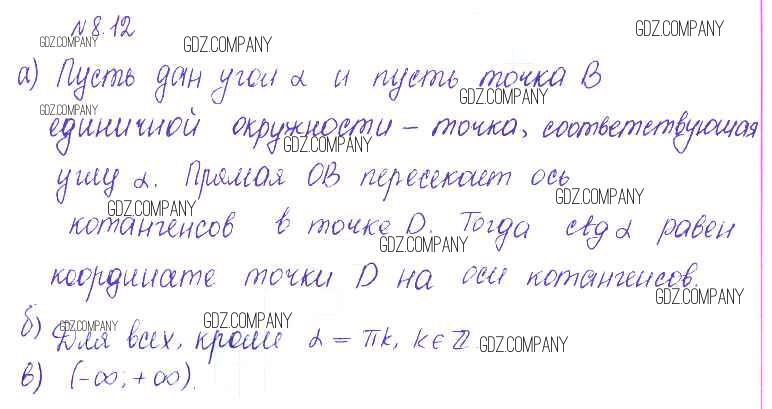 № 8.12
GDZ.COMPANY GDZ.COMPANY GDZ.COMPANY
а) Пусть дан угол α и пусть точка B
GDZ.COMPANY GDZ.COMPANY
единичной окружности – точка, соответствующая
GDZ.COMPANY
углу α. Прямая OB пересекает ось
GDZ.COMPANY GDZ.COMPANY
котангенсов в точке D. Тогда ctg α равен
GDZ.COMPANY
координате точки D на оси котангенсов.
GDZ.COMPANY
GDZ.COMPANY GDZ.COMPANY
б) Для всех, кроме α = πk, k∈ℤ GDZ.COMPANY
в) (-∞; +∞).